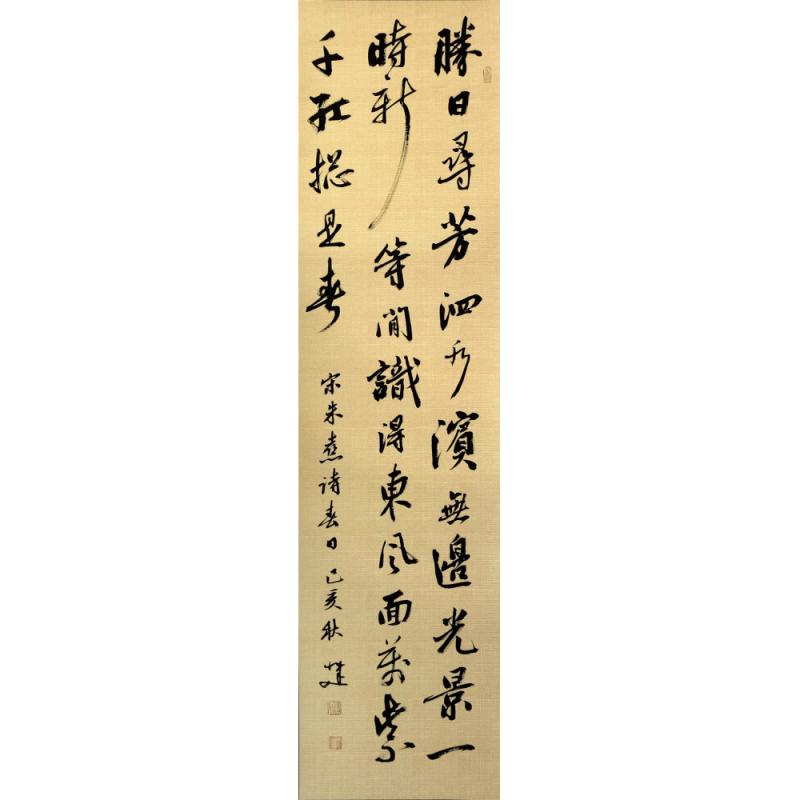 勝日尋芳泗水濱無邊光景一
時新等閒識得東風面萬紫
千紅摠是春
宋朱熹诗春日己亥秋